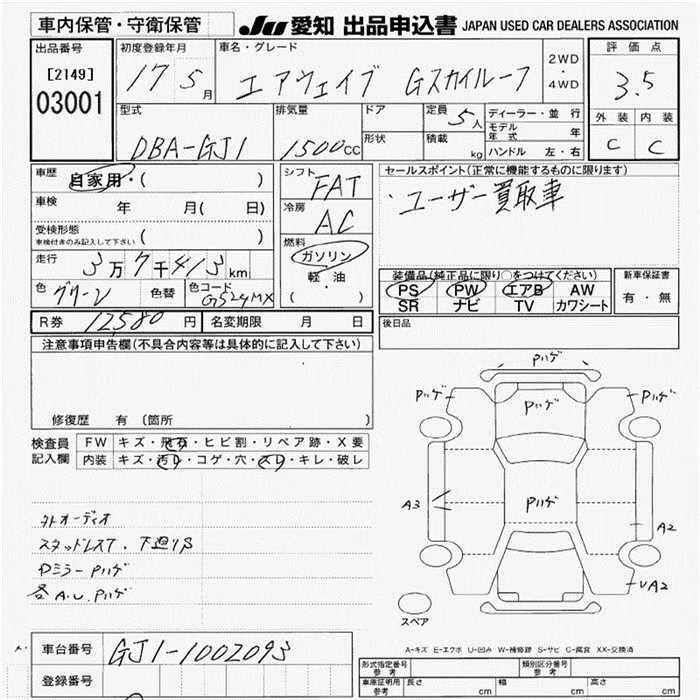 車内保管・守衛保管
JU 愛知 出品申込書 JAPAN USED CAR DEALERS ASSOCIATION
出品番号
[2149]
03001
初度登録年月
17 5月
車名・グレード
エアウェイブ Gスカイルーフ
2WD
・
4WD
評価点
3.5
外装 内装
C C
型式
DBA-GJ1
排気量
1500cc
ドア
形状
定員 5人
積載 kg
ディーラー・並行
モデル年式 年
ハンドル 左・右
車歴 自家用・( )
車検 年 月( 日)
受検形態
車検付きのみ記入して下さい ( )
走行 3万7千413km
色 グリーン 色替 色コード G524MX
シフト FAT
冷房 AC
燃料
ガソリン
軽・油
( )
セールスポイント(正常に機能するものに限ります)
・ユーザー買取車
装備品(純正品に限り○をつけてください)
PS PW エアB AW
SR ナビ TV カワシート
新車保証書
有・無
R券 12,580円 名変期限 月 日
後日品
注意事項申告欄(不具合内容等は具体的に記入して下さい)
修復歴 有 (箇所 )
検査員記入欄
FW キズ・飛石・ヒビ割・リペア跡・X要
内装 キズ・汚れ・コゲ・穴・スレ・キレ・破レ
外オーディオ
スタッドレスT. 下廻りS
Dミラー Pハゲ
各A.U.Pハゲ
Pハゲ
Pハゲ
Pハゲ
Pハゲ
Pハゲ
A3
A2
UA2
スペア
A-キズ E-エクボ U-凹み W-補修跡 S-サビ C-腐食 XX-交換済
車台番号 GJ1-1002093
登録番号
形式指定番号 参考
類別区分番号 参考
車庫証明用 参考 長さ cm 幅 cm 高さ cm